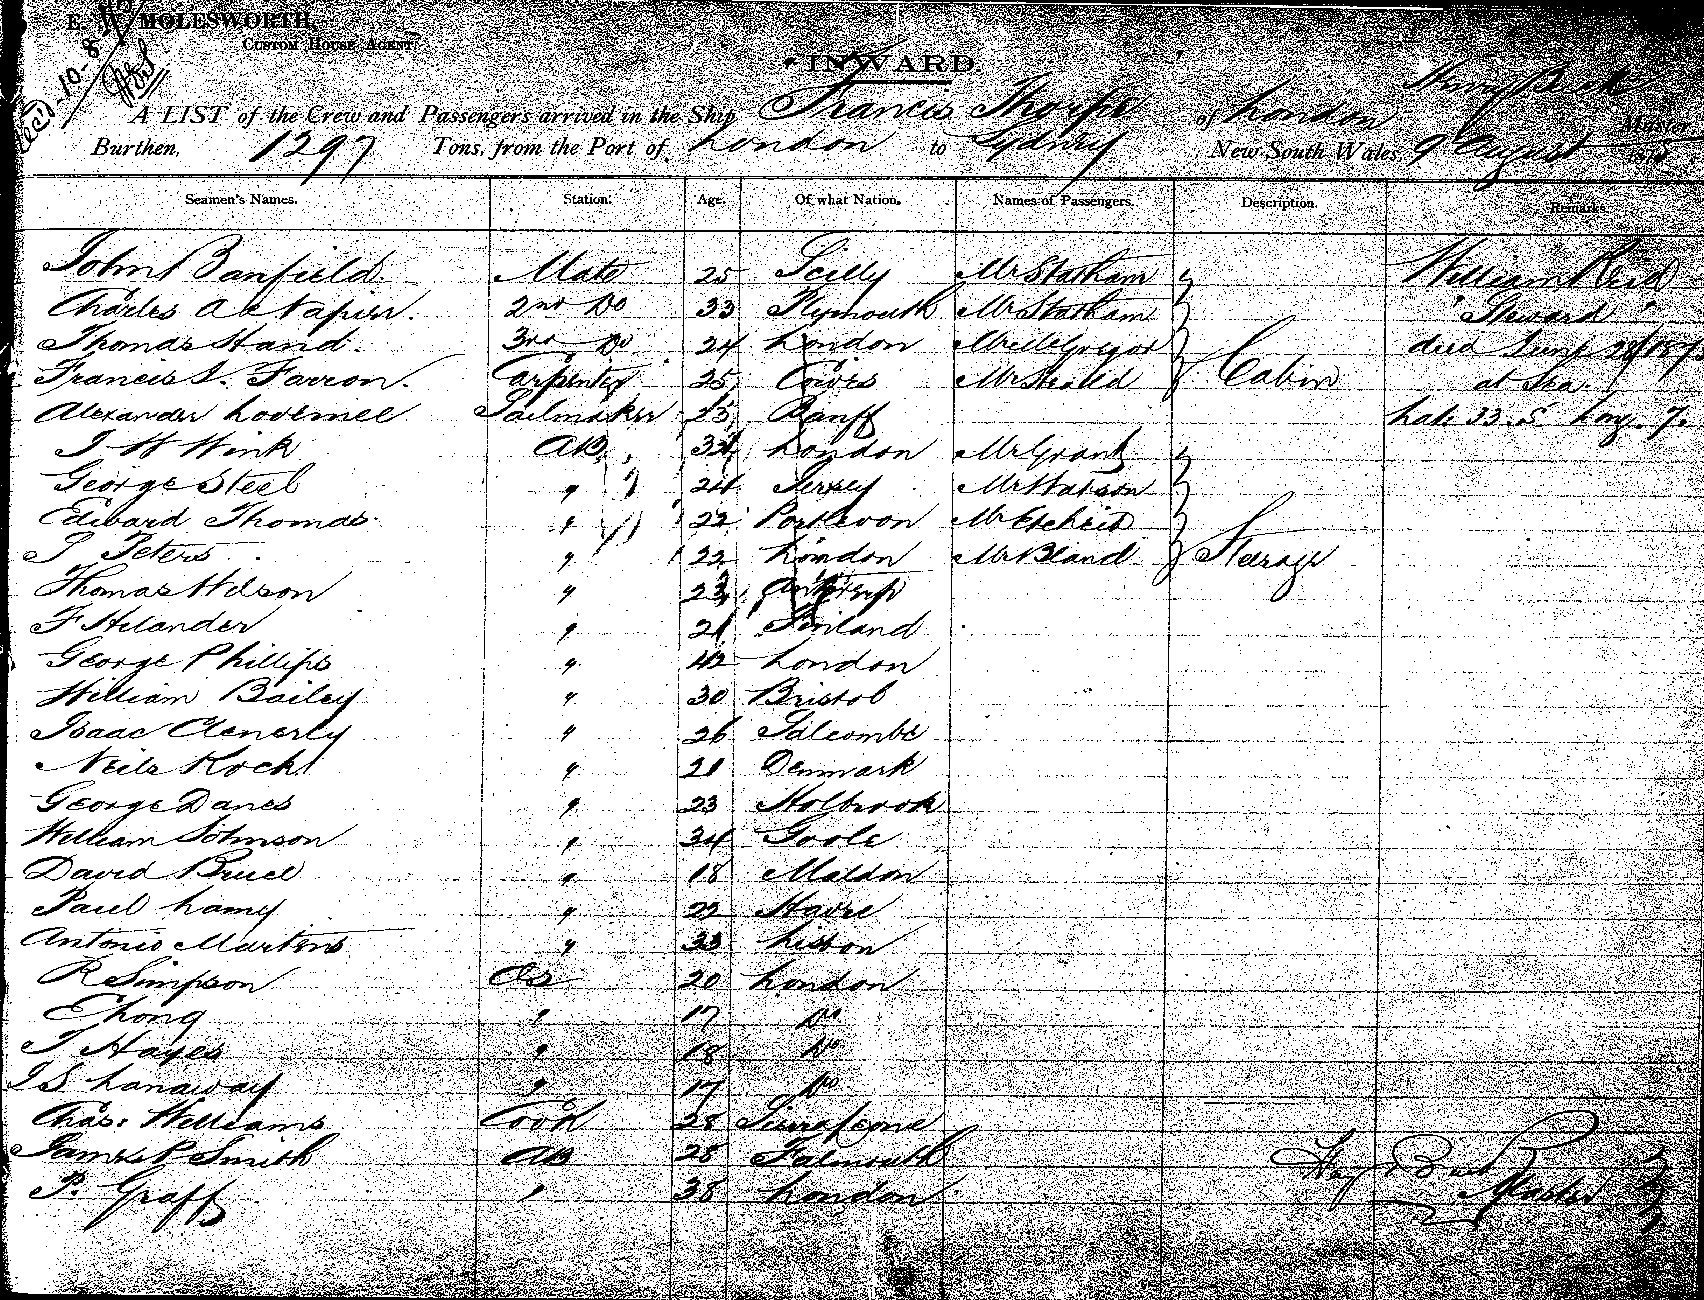 E. W. MOLESWORTH,
CUSTOM HOUSE AGENT.
Recd 10-8
INWARD.
Henry Beck
A LIST of the Crew and Passengers arrived in the Ship Francis Thorpe of London Master,
Burthen, 1297 Tons, from the Port of London to Sydney New South Wales, 9 August 187
Seamen's Names. Station. Age. Of what Nation. Names of Passengers. Description. Remarks.
John Banfield Mate 25 Scilly Mr Statham William Reid
Charles A Napier. 2nd Do 33 Plymouth Mrs Statham "Steward"
Thomas Hand. 3rd Do 24 London McGregor died June 187
Francis Farron. Carpenter 25 Cowes Cabin at Sea
Alexander Sailmaker 25 Banff Lat 33. S Long. 7.
J W Wink AB 34 London Mr Grant
George Steel " 24 Jersey Mr Watson
Edward Thomas " 22 Mr
P Peters " 22 London Mr Bland Steerage
Thomas Wilson " 23 Antwerp
F Hilander " 21 Finland
George Phillips " 42 London
William Bailey " 30 Bristol
Isaac Clenerly " 26 Salcombe
Neils Koch " 21 Denmark
George Danes " 23 Holbrook
William Johnson " 34 Goole
David Bruce " 18 Maldon
Paul Lamy " 22 Havre
Antonio Martens " 33 Lisbon
R Simpson OS 20 London
E Long " 17 Do
T Hayes " 18 Do
J S Lanaway " 17 Do
Chas. Williams Cook 28 Sierra Leone
James P Smith AB 28 Falmouth
P. Graff " 38 London
Hy Beck Master